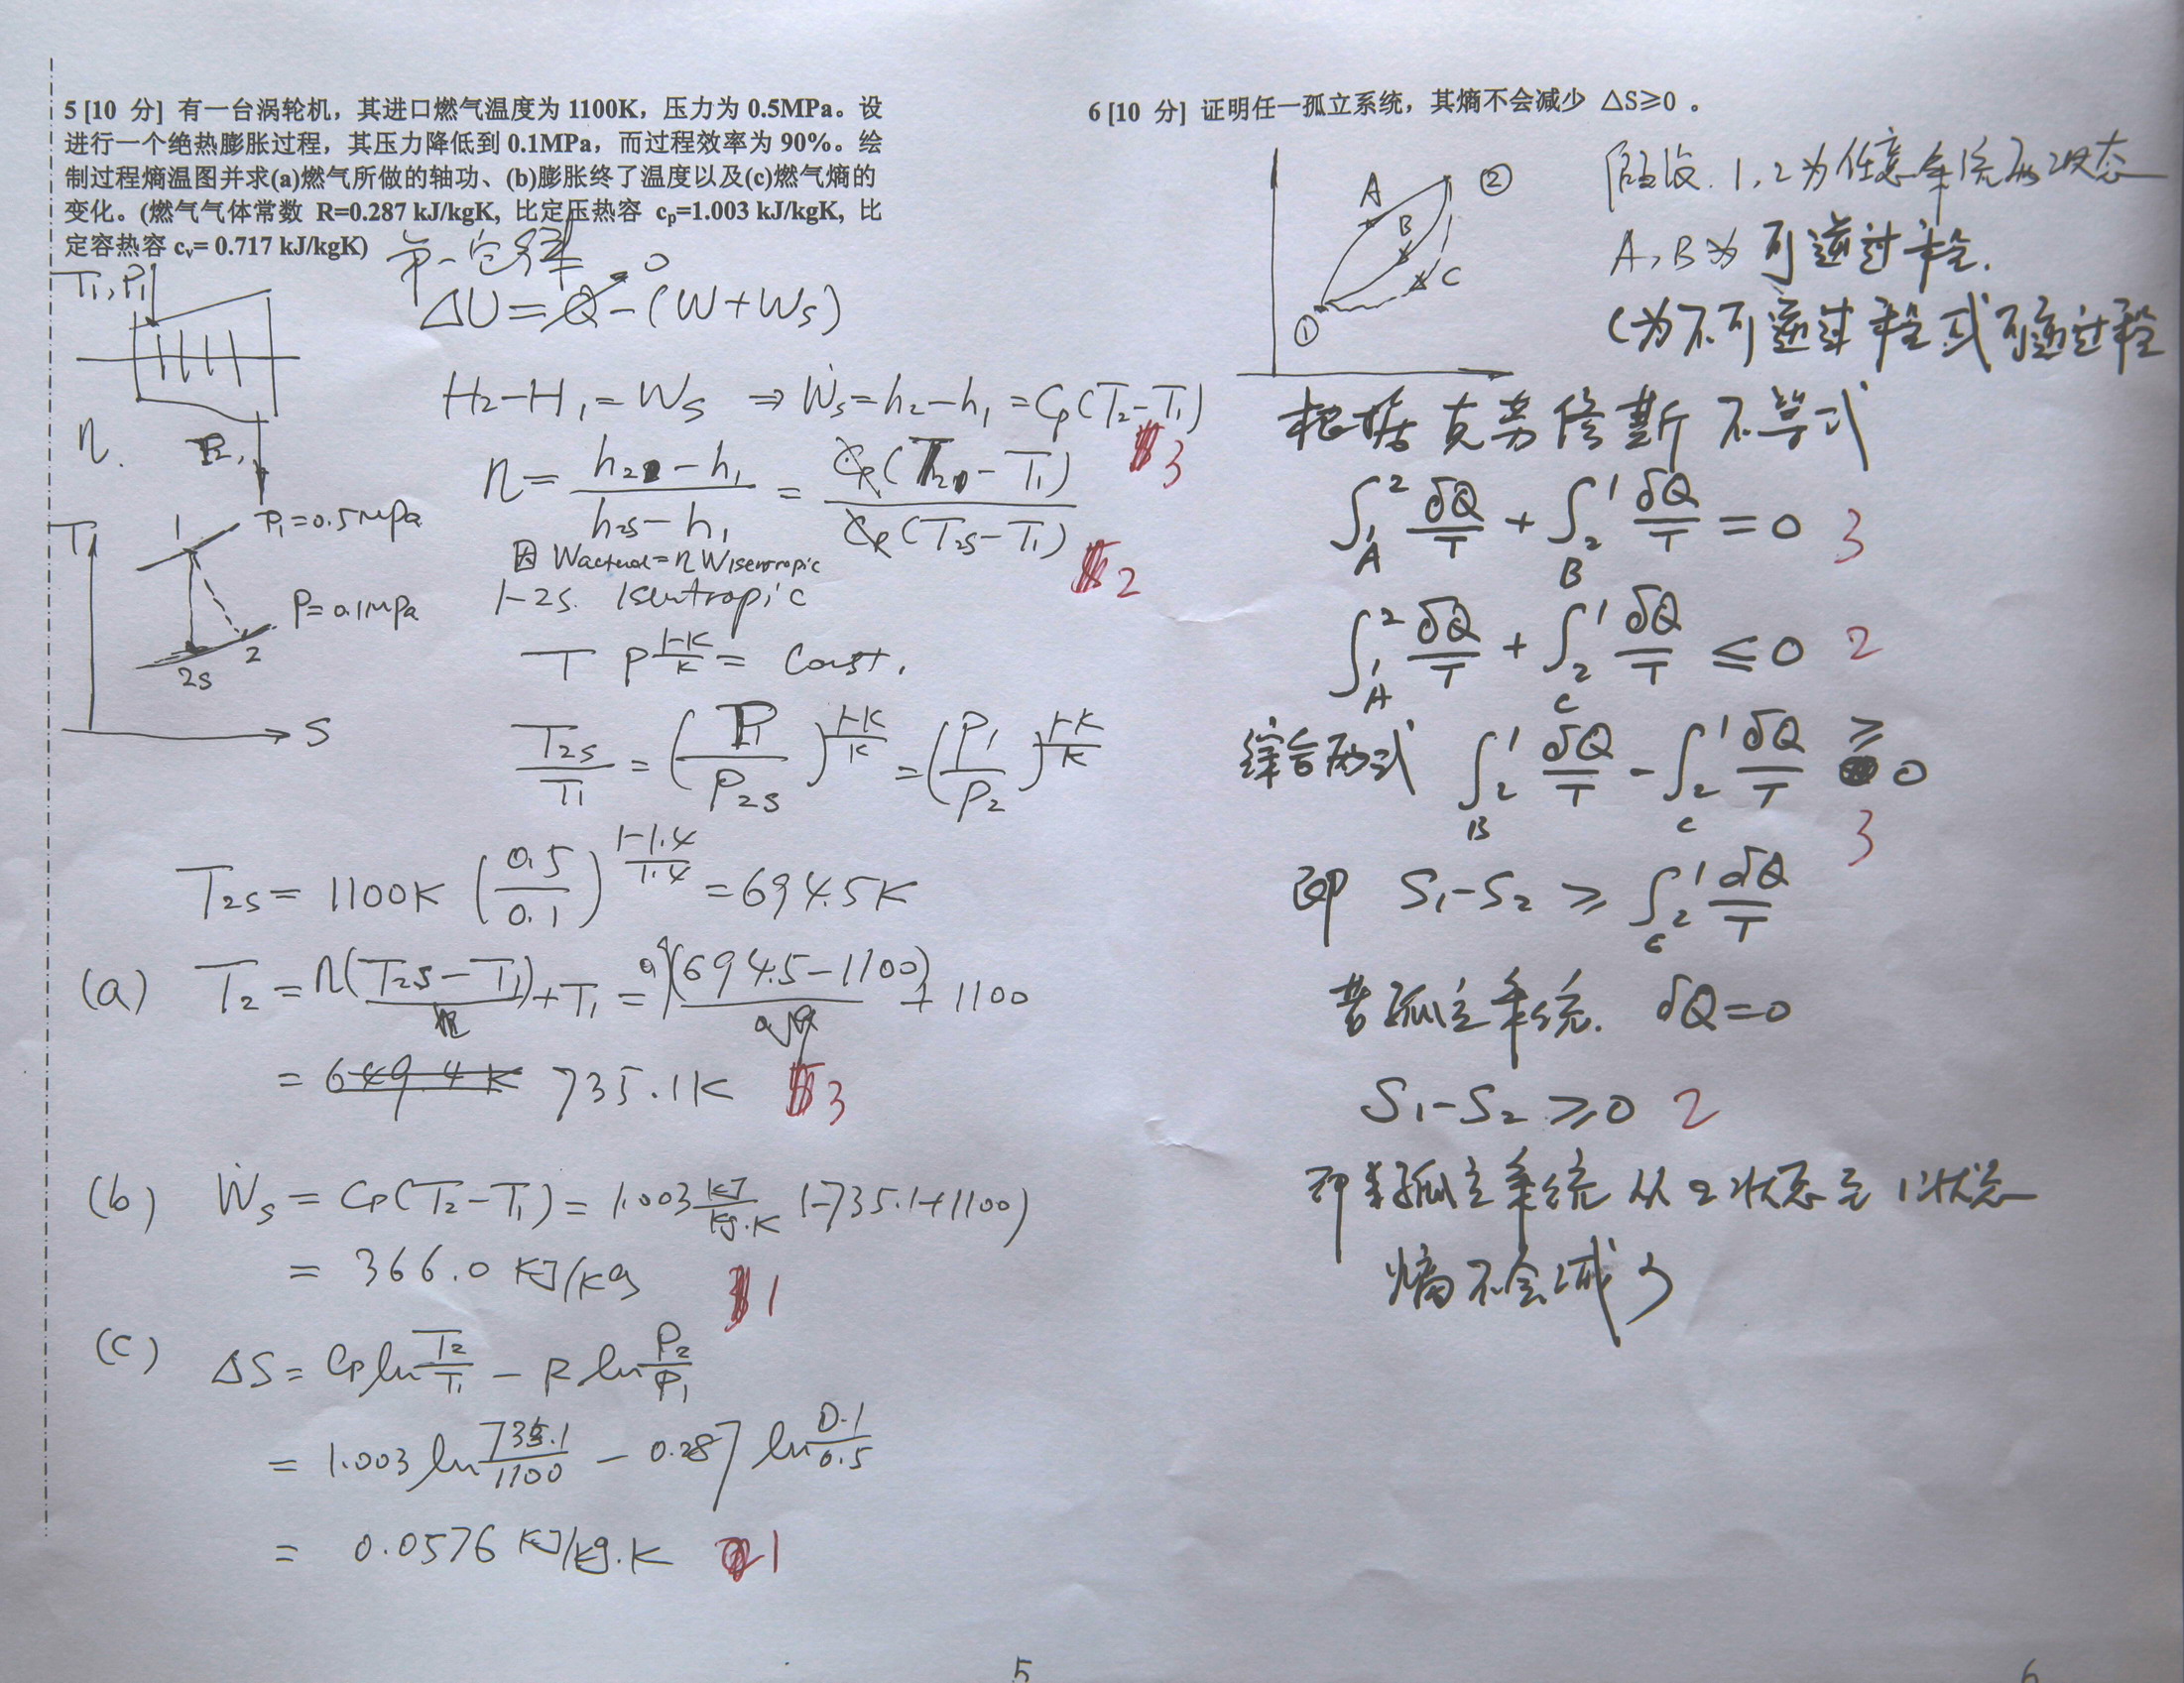 5 [10 分] 有一台涡轮机，其进口燃气温度为 1100K，压力为 0.5MPa。设
进行一个绝热膨胀过程，其压力降低到 0.1MPa，而过程效率为 90%。绘
制过程熵温图并求(a)燃气所做的轴功、(b)膨胀终了温度以及(c)燃气熵的
变化。(燃气气体常数 R=0.287 kJ/kgK, 比定压热容 cp=1.003 kJ/kgK, 比
定容热容 cv= 0.717 kJ/kgK)
第一定律
T₁, P₁
0
ΔU = Q - (W + Ws)
H₂ - H₁ = Ws ⇒ Ẇs = h₂ - h₁ = Cp(T₂ - T₁)
3
η.
P₂,
η = (h₂ - h₁)/(h₂s - h₁) = Cp(T₂ - T₁)/Cp(T₂s - T₁)
2
因 Wactual = η Wisentropic
T
1
P₁=0.5Mpa
P=0.1Mpa
2s
2
S
1-2s. Isentropic
T P^((1-K)/K) = Const.
T₂s/T₁ = (P₁/P₂s)^((1-K)/K) = (P₁/P₂)^((1-K)/K)
T₂s = 1100K (0.5/0.1)^((1-1.4)/1.4) = 694.5K
(a) T₂ = η(T₂s - T₁) + T₁ = 0.9(694.5 - 1100) + 1100
= 649.4K 735.1K 3
(b) Ẇs = Cp(T₂ - T₁) = 1.003 kJ/kg.K (-735.1+1100)
= 366.0 KJ/kg 1
(c) ΔS = Cp ln T₂/T₁ - R ln P₂/P₁
= 1.003 ln 735.1/1100 - 0.287 ln 0.1/0.5
= 0.0576 KJ/kg.K 1
5
6 [10 分] 证明任一孤立系统，其熵不会减少 △S≥0 。
A
B
C
①
②
假设. 1, 2为任意系统两状态
A, B为可逆过程.
C为不可逆过程或可逆过程
根据克劳修斯不等式
∫₁² A δQ/T + ∫₂¹ B δQ/T = 0 3
∫₁² A δQ/T + ∫₂¹ C δQ/T ≤ 0 2
综合两式 ∫₂¹ B δQ/T - ∫₂¹ C δQ/T ≥ 0
3
即 S₁ - S₂ ≥ ∫₂¹ C δQ/T
若孤立系统. δQ=0
S₁ - S₂ ≥ 0 2
即 孤立系统从2状态至1状态
熵不会减少
6